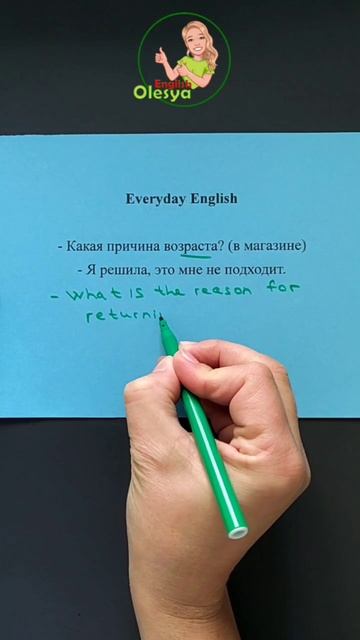 English
Olesya
Everyday English
- Какая причина возраста? (в магазине)
- Я решила, это мне не подходит.
- What is the reason for
returni